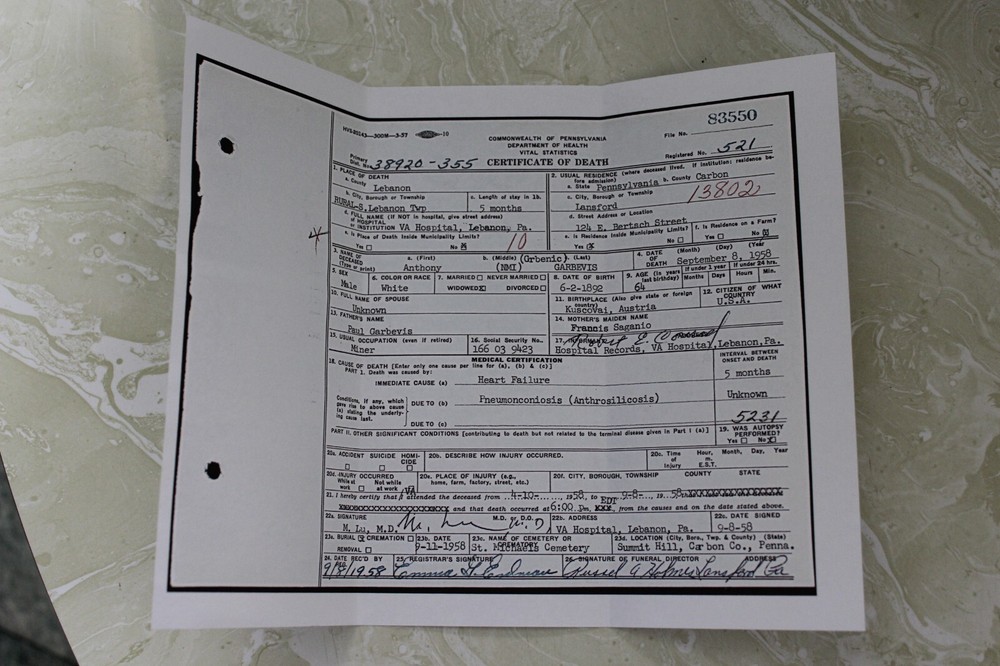 83550
HVS-20143-300M-3-57 10
COMMONWEALTH OF PENNSYLVANIA
DEPARTMENT OF HEALTH
VITAL STATISTICS
File No.
Registered No. 521
Primary Dist. No. 38920-355
CERTIFICATE OF DEATH
1. PLACE OF DEATH
a. County Lebanon
2. USUAL RESIDENCE (Where deceased lived. If institution: residence before admission)
a. State Pennsylvania b. County Carbon
b. City, Borough or Township
RURAL-S.Lebanon Twp
c. Length of stay in 1b.
5 months
c. City, Borough or Township
Lansford
13802
d. FULL NAME (If NOT in hospital, give street address) OF HOSPITAL OR INSTITUTION VA Hospital, Lebanon, Pa.
d. Street Address or Location
124 E. Bertsch Street
e. Is Place of Death Inside Municipality Limits?
Yes No X
10
e. Is Residence Inside Municipality Limits?
Yes X No
f. Is Residence on a Farm?
Yes No X
3. NAME OF DECEASED (Type or print)
a. (First) b. (Middle) (Grbenic) c. (Last)
Anthony (NMI) GARBEVIS
4. DATE OF DEATH (Month) (Day) (Year)
September 8, 1958
5. SEX
Male
6. COLOR OR RACE
White
7. MARRIED NEVER MARRIED
WIDOWED X DIVORCED
8. DATE OF BIRTH
6-2-1892
9. AGE (in years last birthday)
64
If under 1 year Months Days
If under 24 hrs. Hours Min.
10. FULL NAME OF SPOUSE
Unknown
11. BIRTHPLACE (Also give state or foreign country)
Kuscovai, Austria
12. CITIZEN OF WHAT COUNTRY
U.S.A.
13. FATHER'S NAME
Paul Garbevis
14. MOTHER'S MAIDEN NAME
Francis Saganio
15. USUAL OCCUPATION (even if retired)
Miner
16. Social Security No.
166 03 9423
17. INFORMANT
Hospital Records, VA Hospital, Lebanon, Pa.
MEDICAL CERTIFICATION
18. CAUSE OF DEATH [Enter only one cause per line for (a), (b) & (c)]
PART I. Death was caused by:
INTERVAL BETWEEN ONSET AND DEATH
IMMEDIATE CAUSE (a) Heart Failure
5 months
Conditions, if any, which gave rise to above cause (a) stating the underlying cause last.
DUE TO (b) Pneumonconiosis (Anthrosilicosis)
Unknown
DUE TO (c)
5231
PART II. OTHER SIGNIFICANT CONDITIONS [contributing to death but not related to the terminal disease given in Part I (a)]
19. WAS AUTOPSY PERFORMED?
Yes No X
20a. ACCIDENT SUICIDE HOMICIDE
20b. DESCRIBE HOW INJURY OCCURRED.
20c. Time of injury Hour, m. E.S.T. Month, Day, Year
20d. INJURY OCCURRED
While at work Not while at work
20e. PLACE OF INJURY (e.g., home, farm, factory, street, etc.)
20f. CITY, BOROUGH, TOWNSHIP COUNTY STATE
21. I hereby certify that VA attended the deceased from 4-10- 1958, to 9-8- 1958
and that death occurred at 6:00 pm. EDT, from the causes and on the date stated above.
22a. SIGNATURE M.D. D.O.
M. Lu, M.D.
22b. ADDRESS
VA Hospital, Lebanon, Pa.
22c. DATE SIGNED
9-8-58
23a. BURIAL X CREMATION
REMOVAL
23b. DATE
9-11-1958
23c. NAME OF CEMETERY OR CREMATORY
St. Michaels Cemetery
23d. LOCATION (City, Boro, Twp. & County) (State)
Summit Hill, Carbon Co., Penna.
24. DATE REC'D BY
9/8/1958
25. REGISTRAR'S SIGNATURE
26. SIGNATURE OF FUNERAL DIRECTOR ADDRESS
Lansford Pa